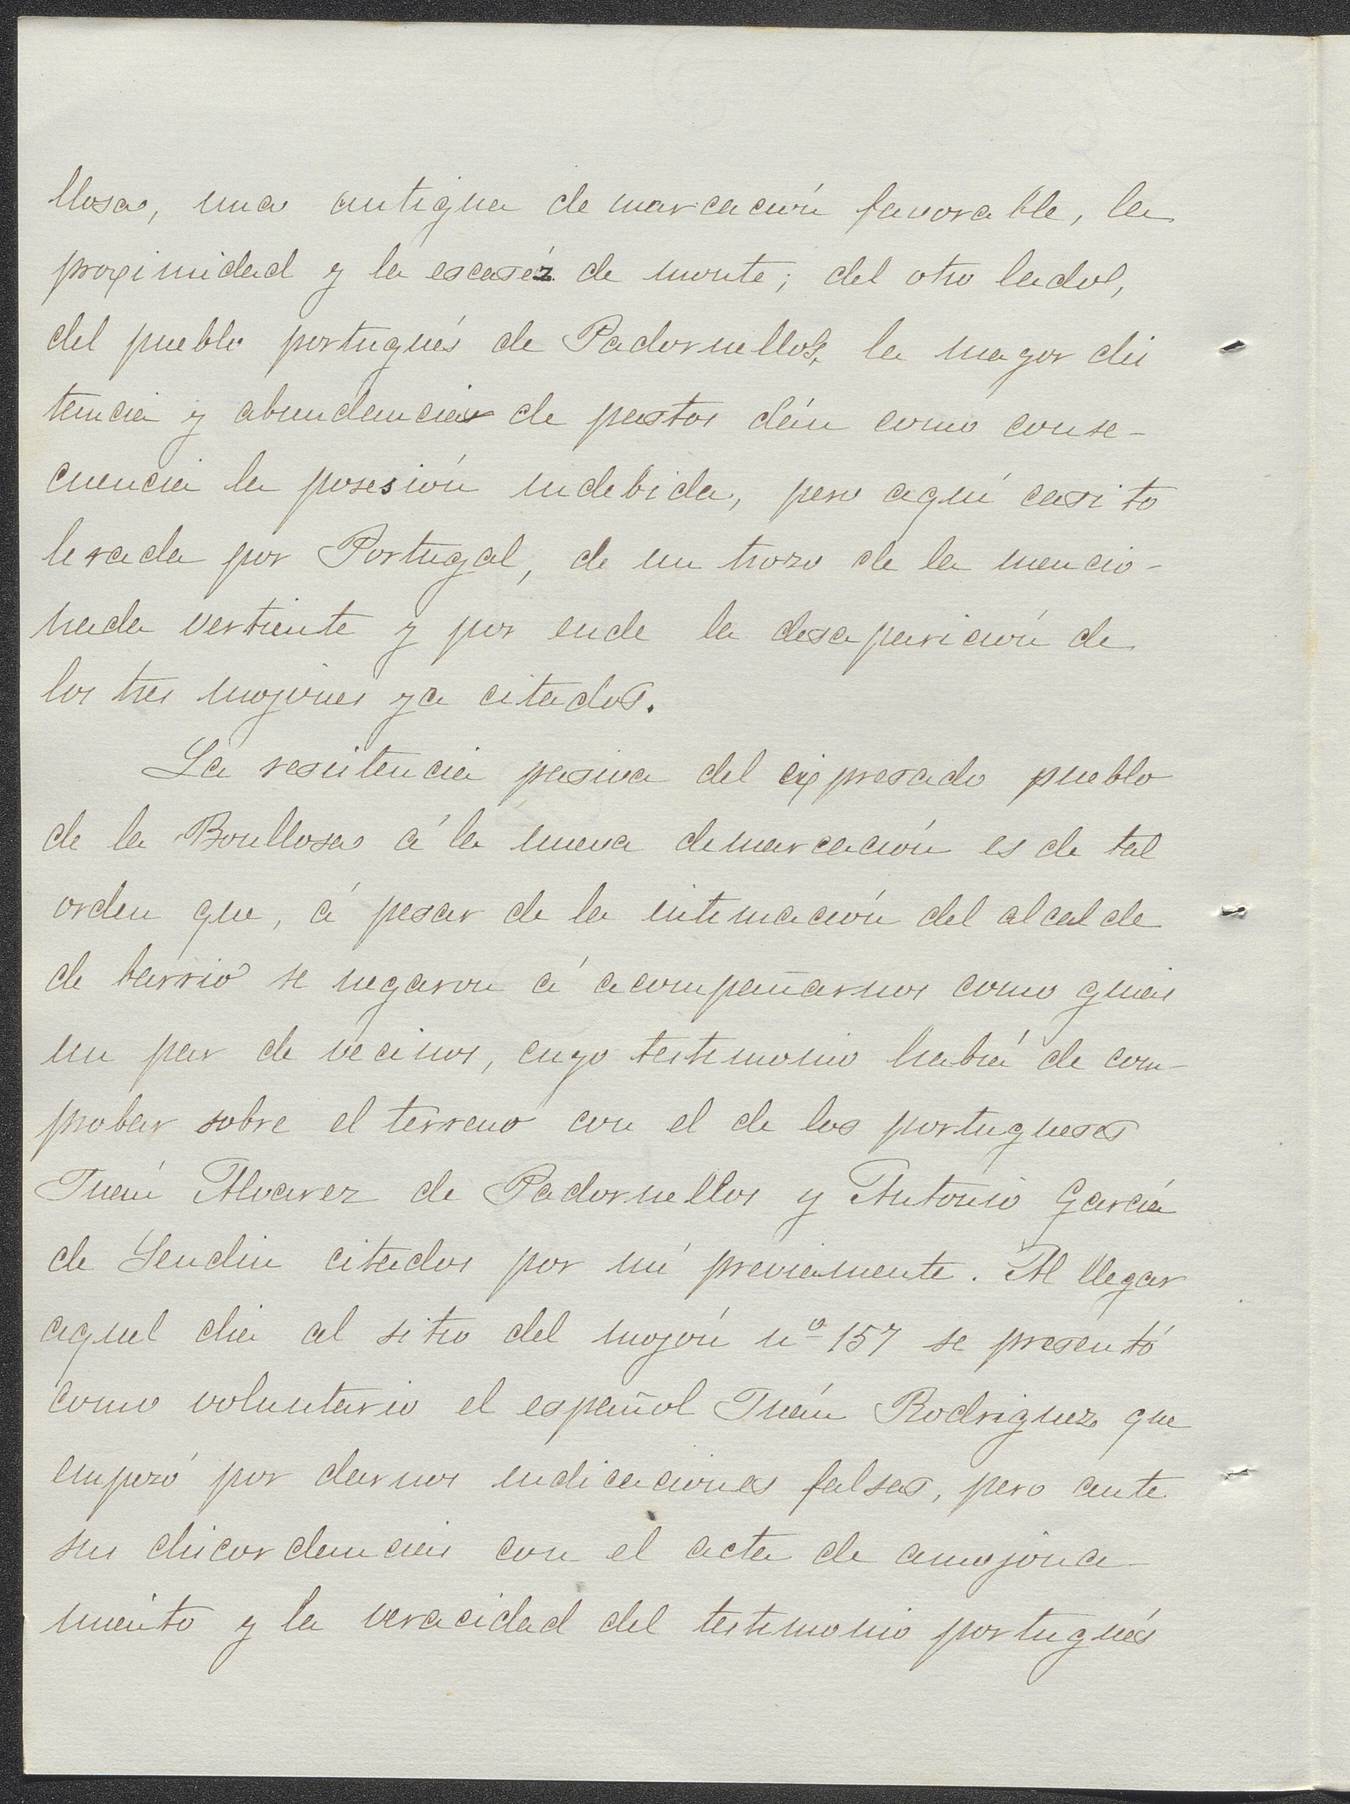 llosa, una antigua demarcación favorable, la
proximidad y la escaséz de monte; del otro lado,
del pueblo portugués de Padornellos, la mayor dis
tancia y abundancia de pastos dán como conse-
cuencia la posesión indebida, pero aquí casi to
lerada por Portugal, de un trozo de la mencio-
nada vertiente y por ende la desaparición de
los tres mojones ya citados.
La resistencia pasiva del expresado pueblo
de la Boullosa á la nueva demarcación es de tal
orden que, á pesar de la intimación del alcalde
de barrio se negaron á acompañarnos como guias
un par de vecinos, cuyo testimonio habiá de com-
probar sobre el terreno con el de los portugueses
Juán Alvarez de Padornellos y Antonio Garciá
de Sendin citados por mí previamente. Al llegar
aquel dia al sitio del mojón nº 157 se presentó
como voluntario el español Juán Rodriguez que
empezó por darnos indicaciones falsas, pero ante
sus discordancias con el acta de amojona-
miento y la veracidad del testimonio portugués